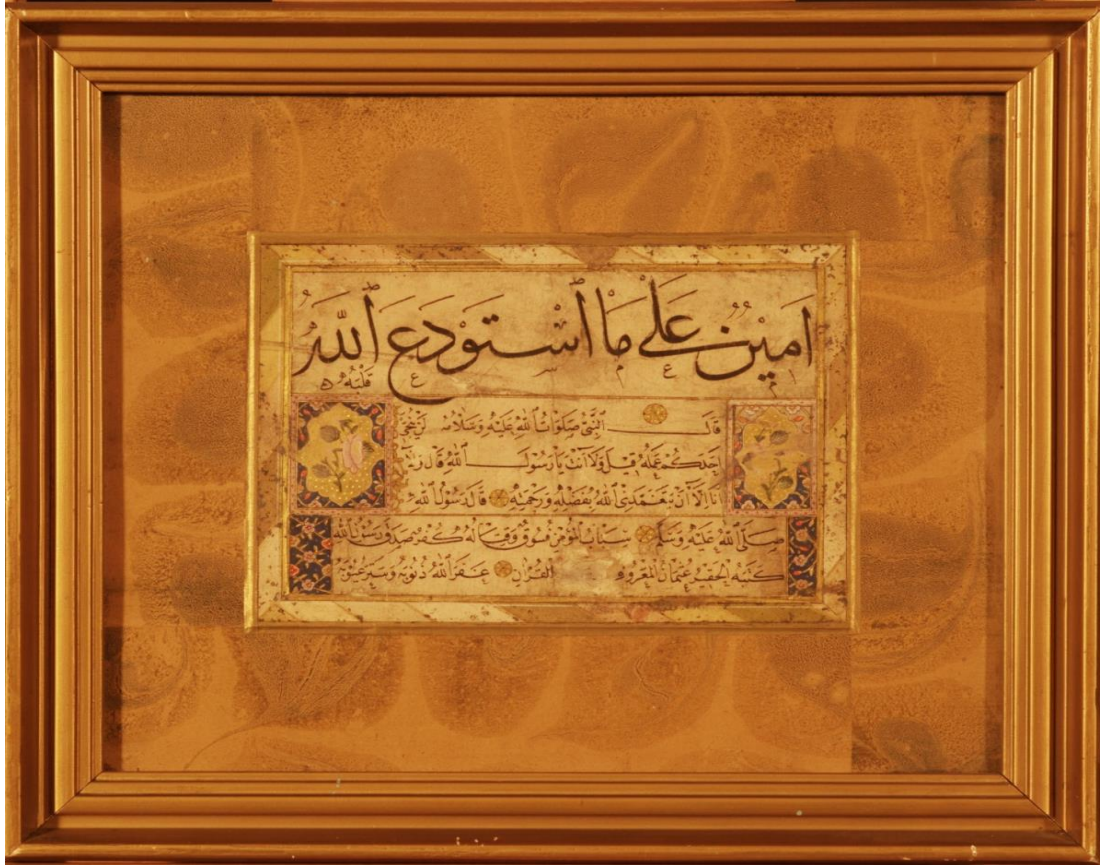 اَمِينٌ عَلَى مَا اسْتَوْدَعَ اللّٰهُ
قَلْبَهُ
قَالَ النَّبِيُّ صَلَوَاتُ اللّٰهِ عَلَيْهِ وَسَلَامُهُ لَنْ يُنْجِيَ
اَحَدَكُمْ عَمَلُهُ قِيلَ وَلَا اَنْتَ يَا رَسُولَ اللّٰهِ قَالَ وَلَا
اَنَا اِلَّا اَنْ يَتَغَمَّدَنِيَ اللّٰهُ بِفَضْلِهِ وَرَحْمَتِهِ قَالَ رَسُولُ اللّٰهِ
صَلَّى اللّٰهُ عَلَيْهِ وَسَلَّمَ سِبَابُ الْمُؤْمِنِ فُسُوقٌ وَقِتَالُهُ كُفْرٌ صَدَقَ رَسُولُ اللّٰهِ
كَتَبَهُ الْحَقِيرُ عُثْمَانُ الْمَعْرُوفُ الْقُرْآنِ غَفَرَ اللّٰهُ ذُنُوبَهُ وَسَتَرَ عُيُوبَهُ